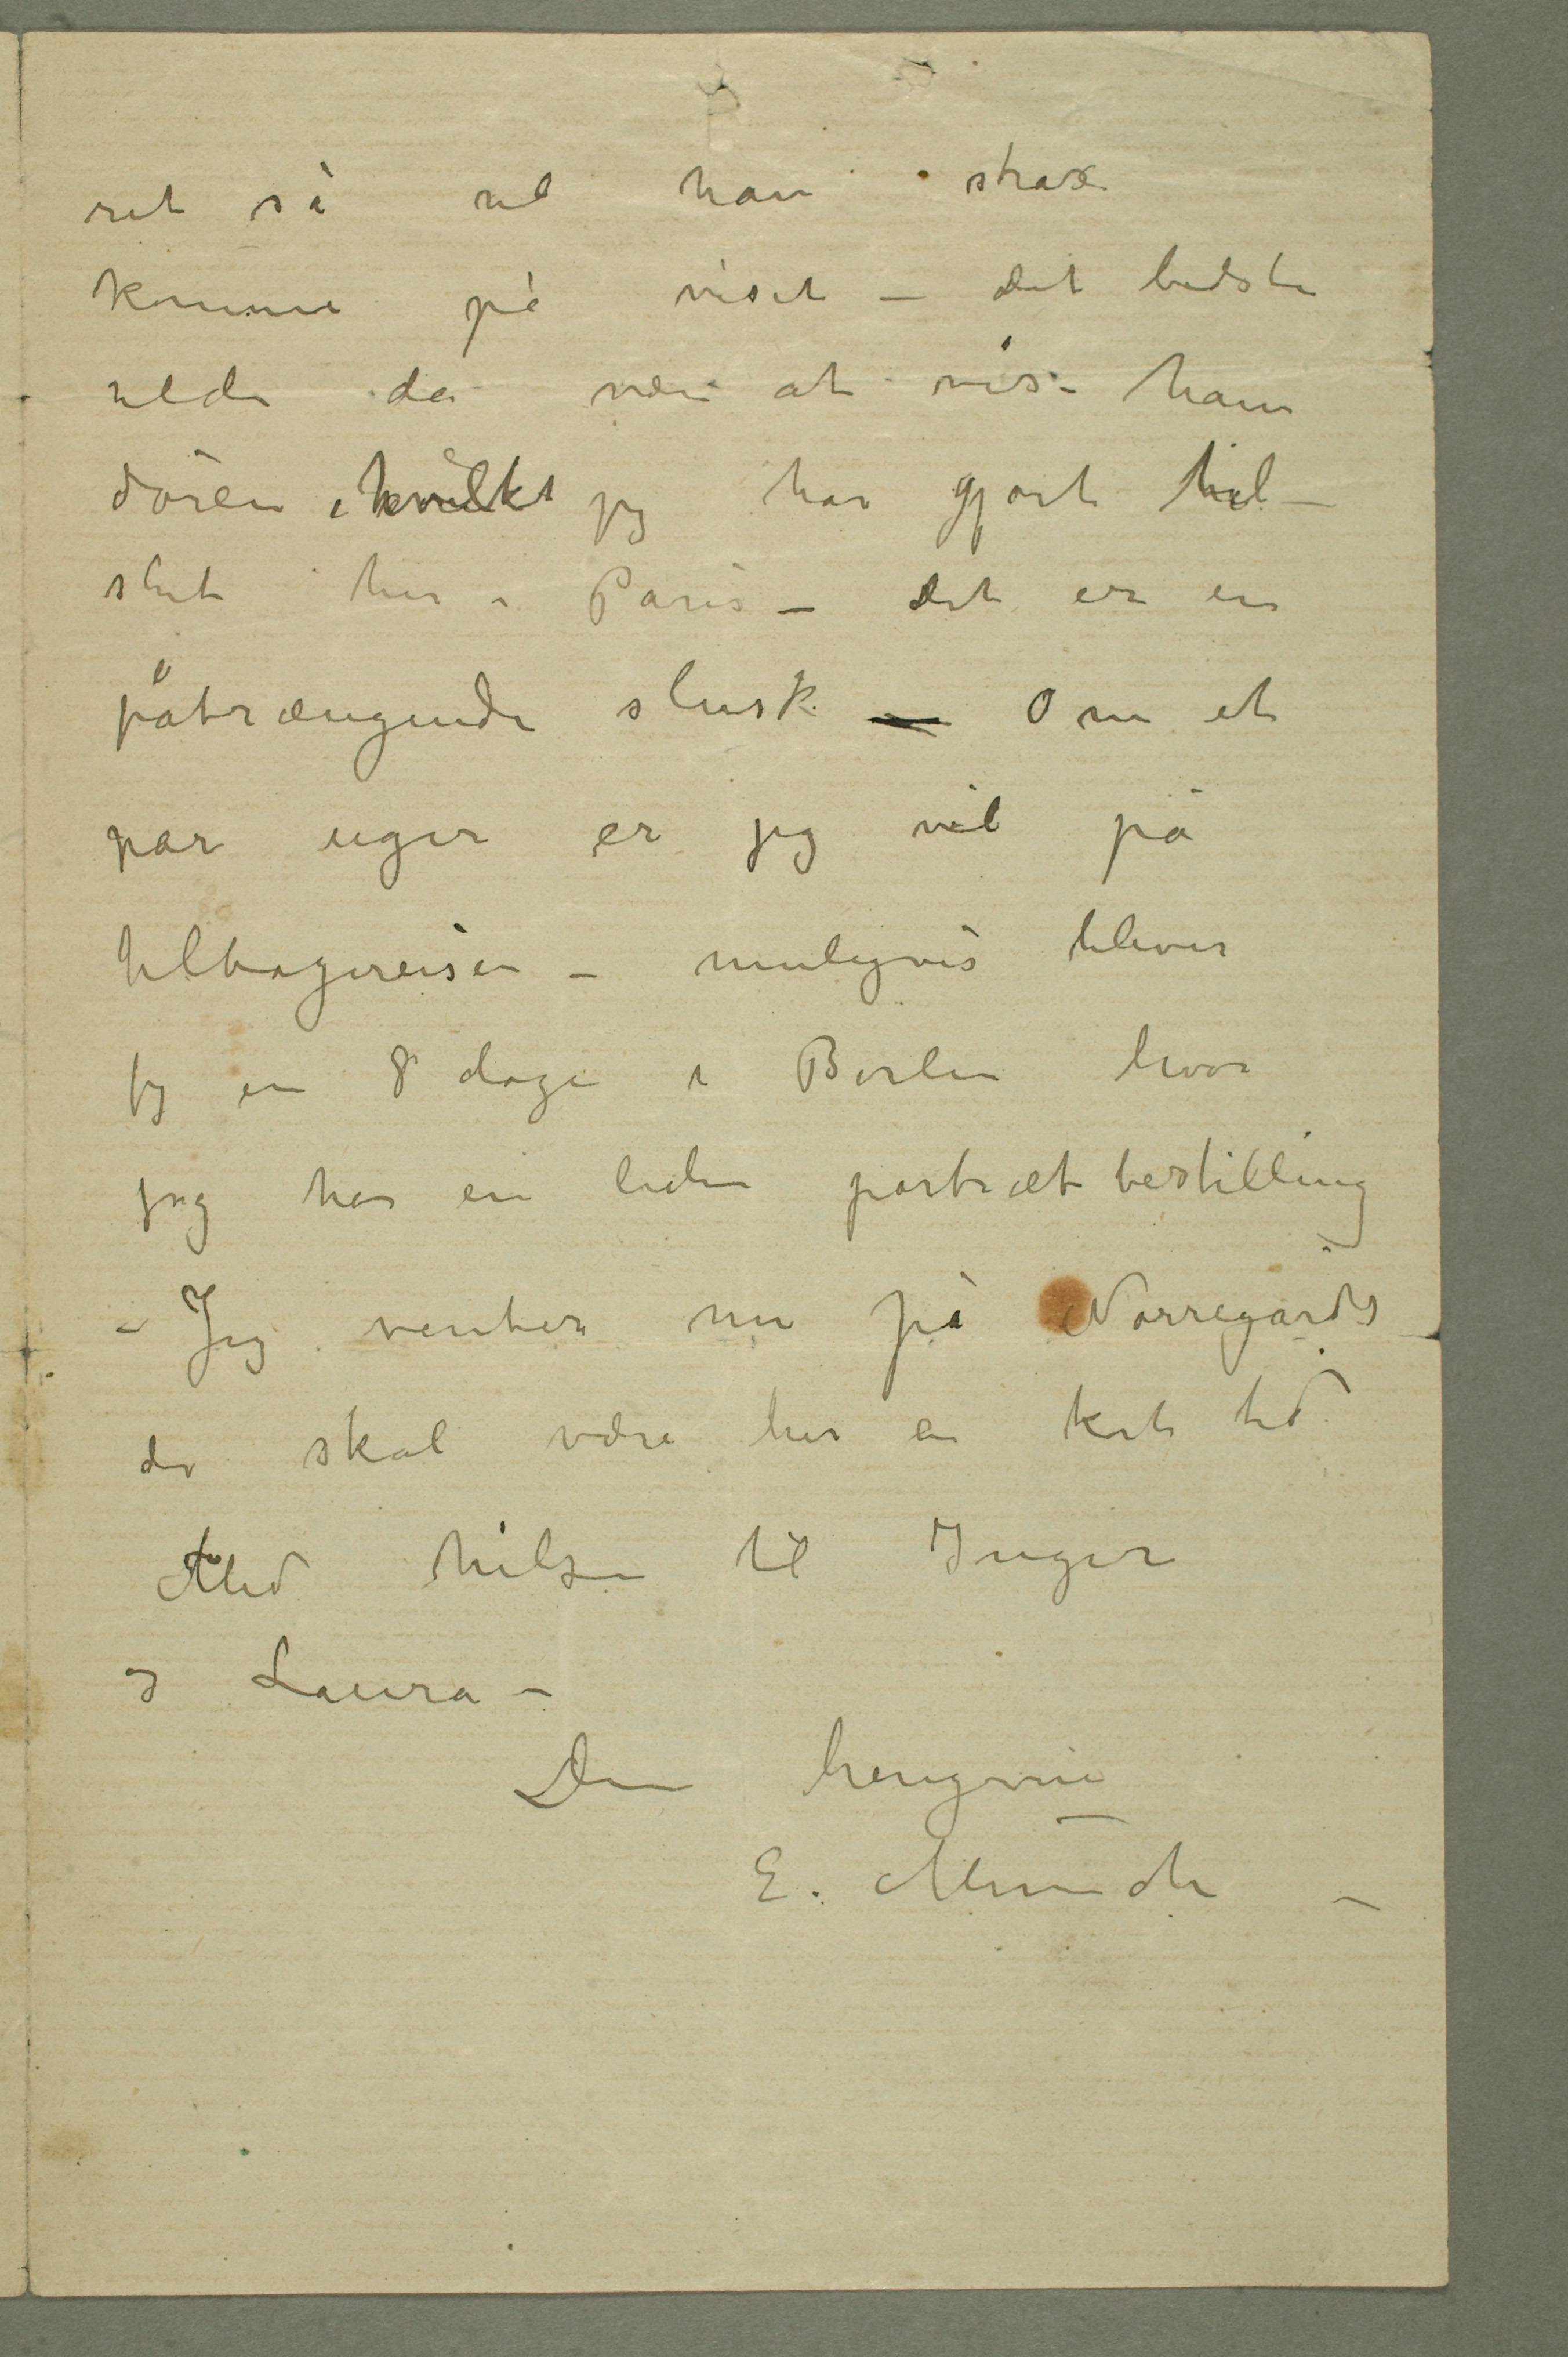 ret så vil han strax
komme på visit – det bedste
vilde da være at vise ham
døren hvilket jeg har gjort til-
slut her i Paris – det er en
påtrængende slusk – Om et
par uger er jeg vel på
tilbagereisen – muligvis bliver
jeg en 8 dage i Berlin hvor
jeg har en liden portrætbestilling
– Jeg venter nu på Nørregårds
der skal være her en kort tid
Med hilsen til Inger
og Laura –
Din hengivne
E. Munch –